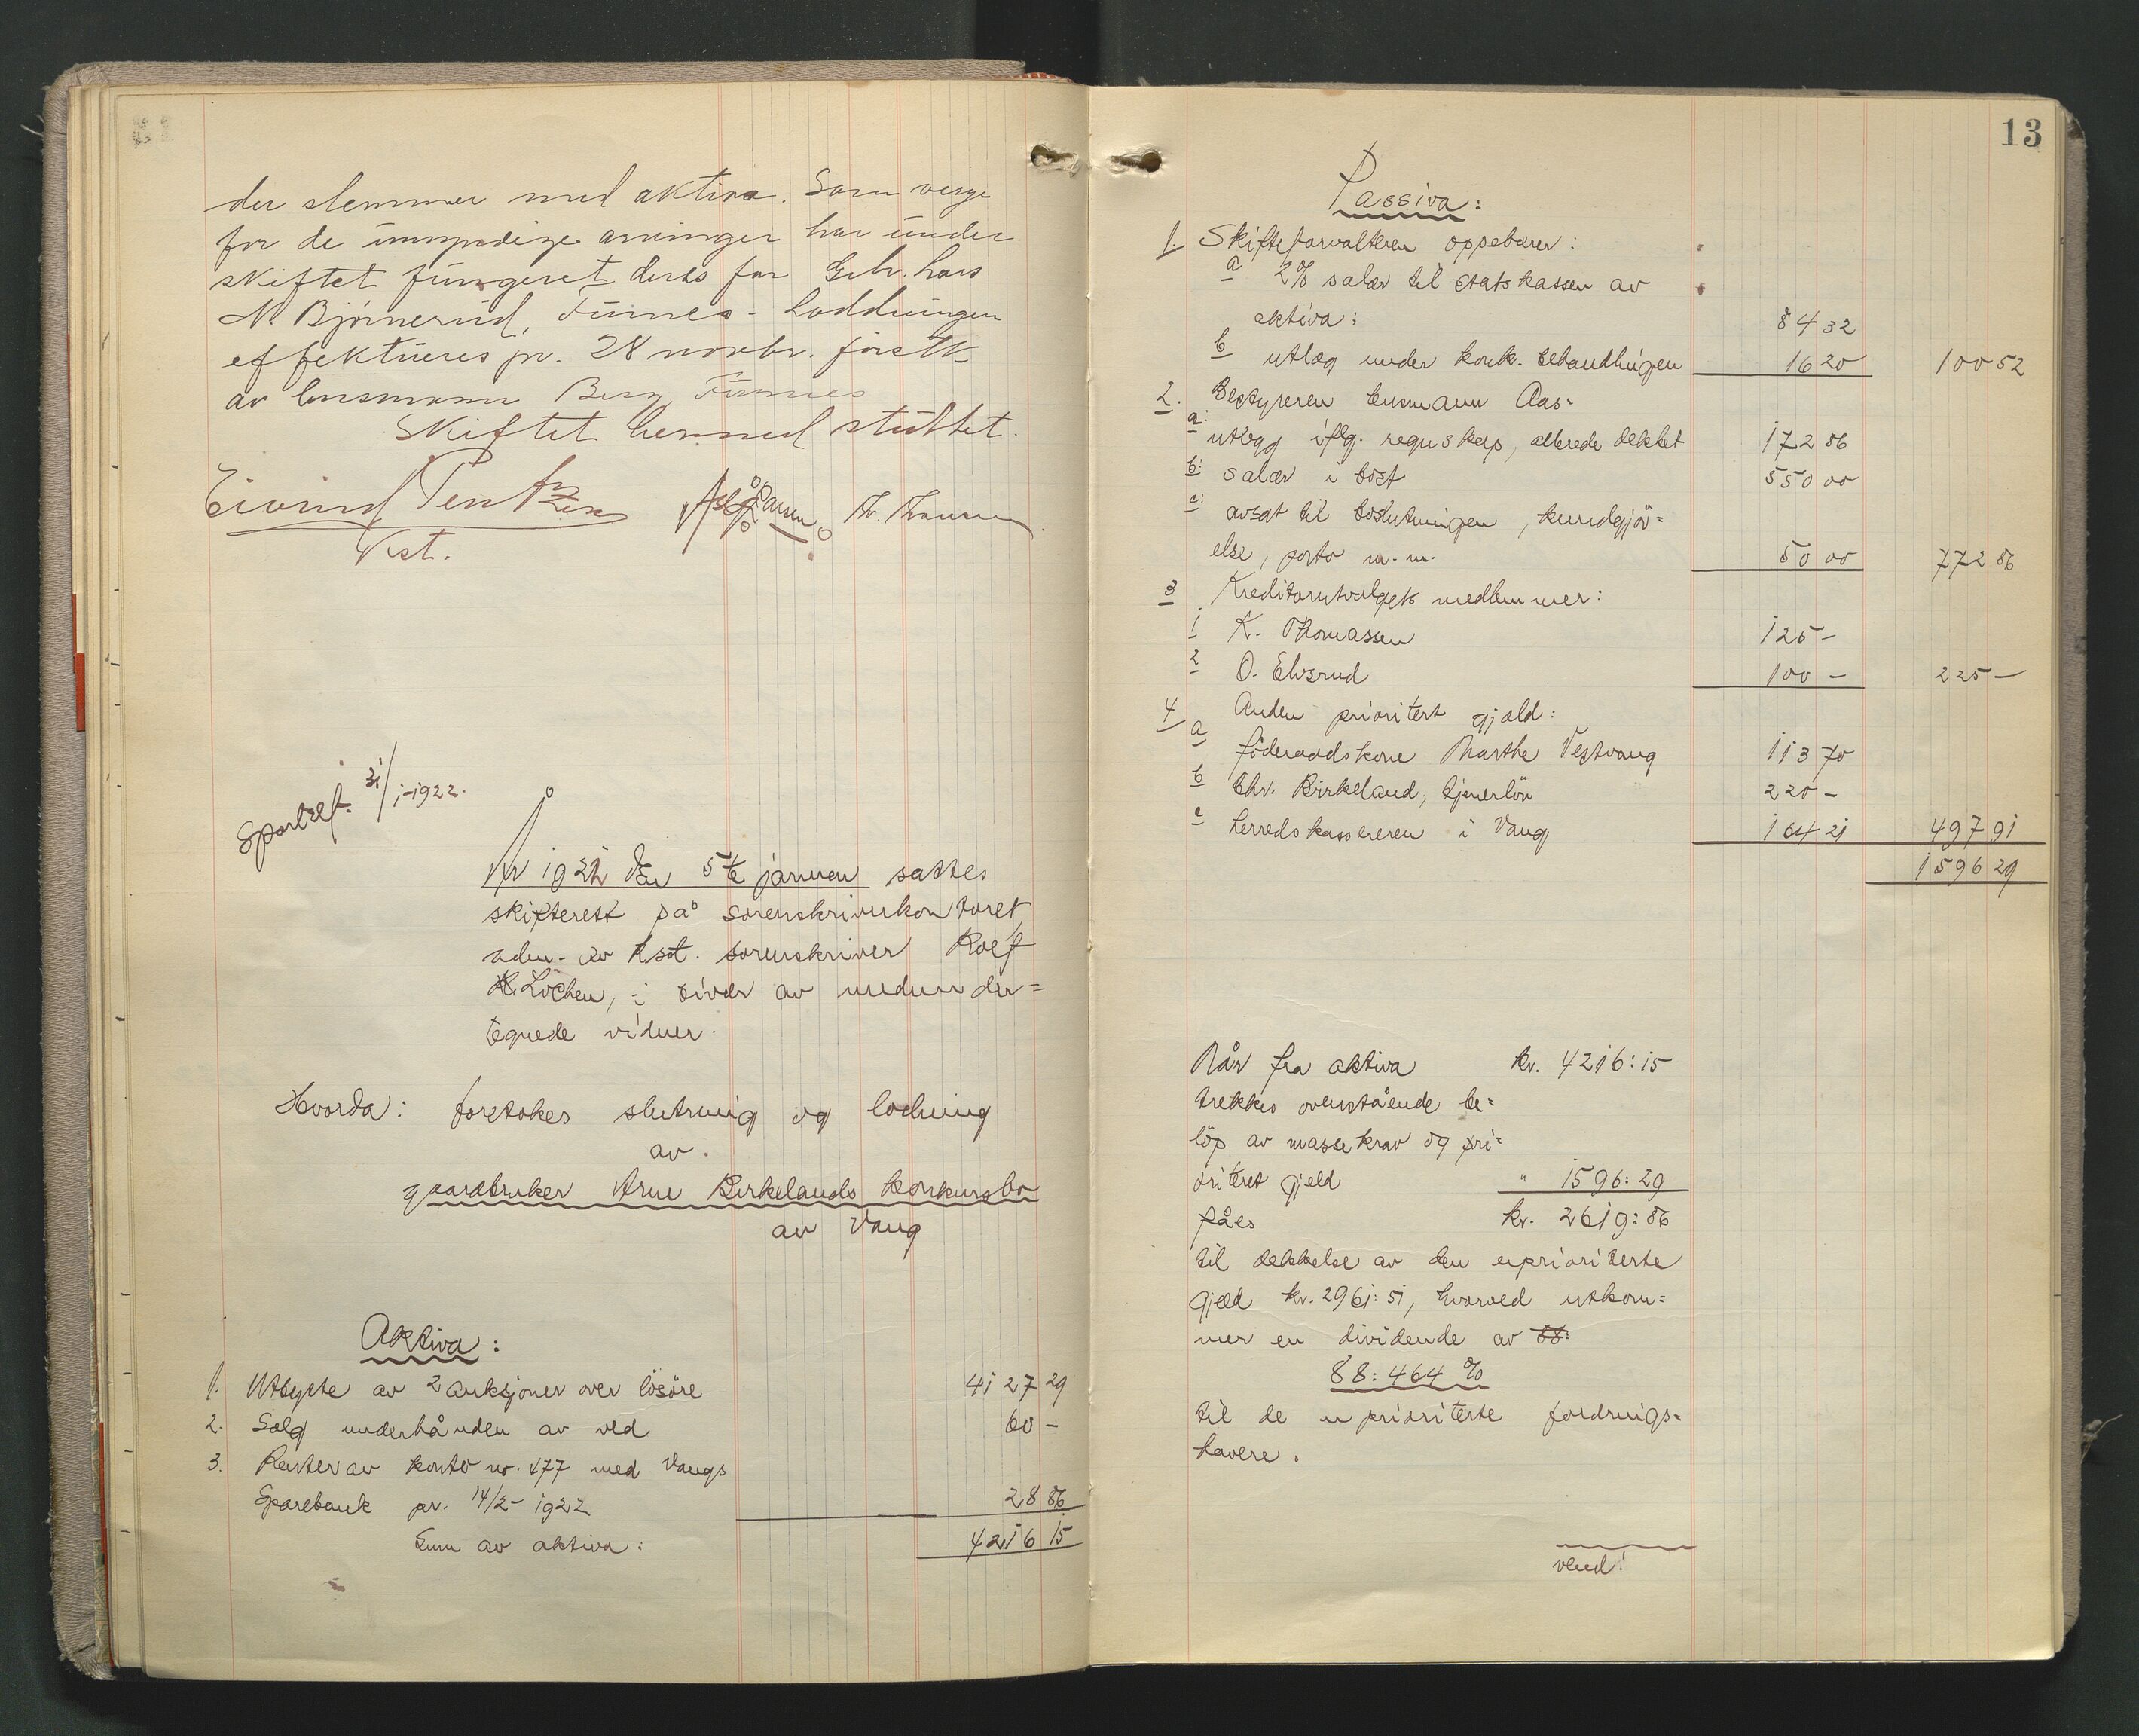 der stemmer med aktiva. Som verge
for de umyndige arvinger har under
skiftet fungeret deres far Gbr. Lars
N. Bjørnerud, Furnes - Loddningen
effektueres pr. 28 novbr. førstk.
av lensmann Berg, Furnes
Skiftet hermed sluttet.
Eivind
Kst.
31/1-1922.
År 1922 den 5te januar sattes
skifterett på sorenskriverkontoret
av kst. sorenskriver Rolf
Löchen, i nedunder=
tegnede vidner.
Hvorda: foretokes slutning og lodning
av.
gaardbruker Arne Birkelands konkursbo
av Vang
Aktiva:
1. Utbytte av 2 auksjoner over lösöre 4127 29
2. Salg underhånden av ved 60 -
3. Renter av konto nr. 477 med Vangs
Sparebank pr. 14/2-1922 28 86
Sum av aktiva: 4216 15
13
Passiva:
1. Skifteforvalteren oppebærer:
a 2% salær til statskassen av
aktiva: 84 32
b utlæg under konk. behandlingen 16 20 100 52
2. Bestyreren lensmann Aas:
a: utlegg iflg. regnskap, allerede dekket 172 86
b: salær i boet 550 00
c: avsat til boslutningen, kundgjör=
else, porto m.m. 50 00 772 86
3 Kreditorutvalgets medlemmer:
1 K. Thomassen 125 -
2 O. Elvsrud 100 - 225 -
4 Anden prioritert gjæld:
a föderaadskone Marthe Vestvang 113 70
b Chr. Birkeland, tjenerlön 220 -
c herredskassereren i Vang 164 21 497 91
1596 29
Når fra aktiva kr. 4216:15
trekkes ovenstående be=
löp av massekrav og pri=
oritert gjeld " 1596:29
fåes kr. 2619:86
til dekkelse av den uprioriterte
gjæld kr. 2961:51, hvorved utkom=
mer en dividende av 88:
88:464 %
til de uprioriterte fordrings=
havere.
vend!